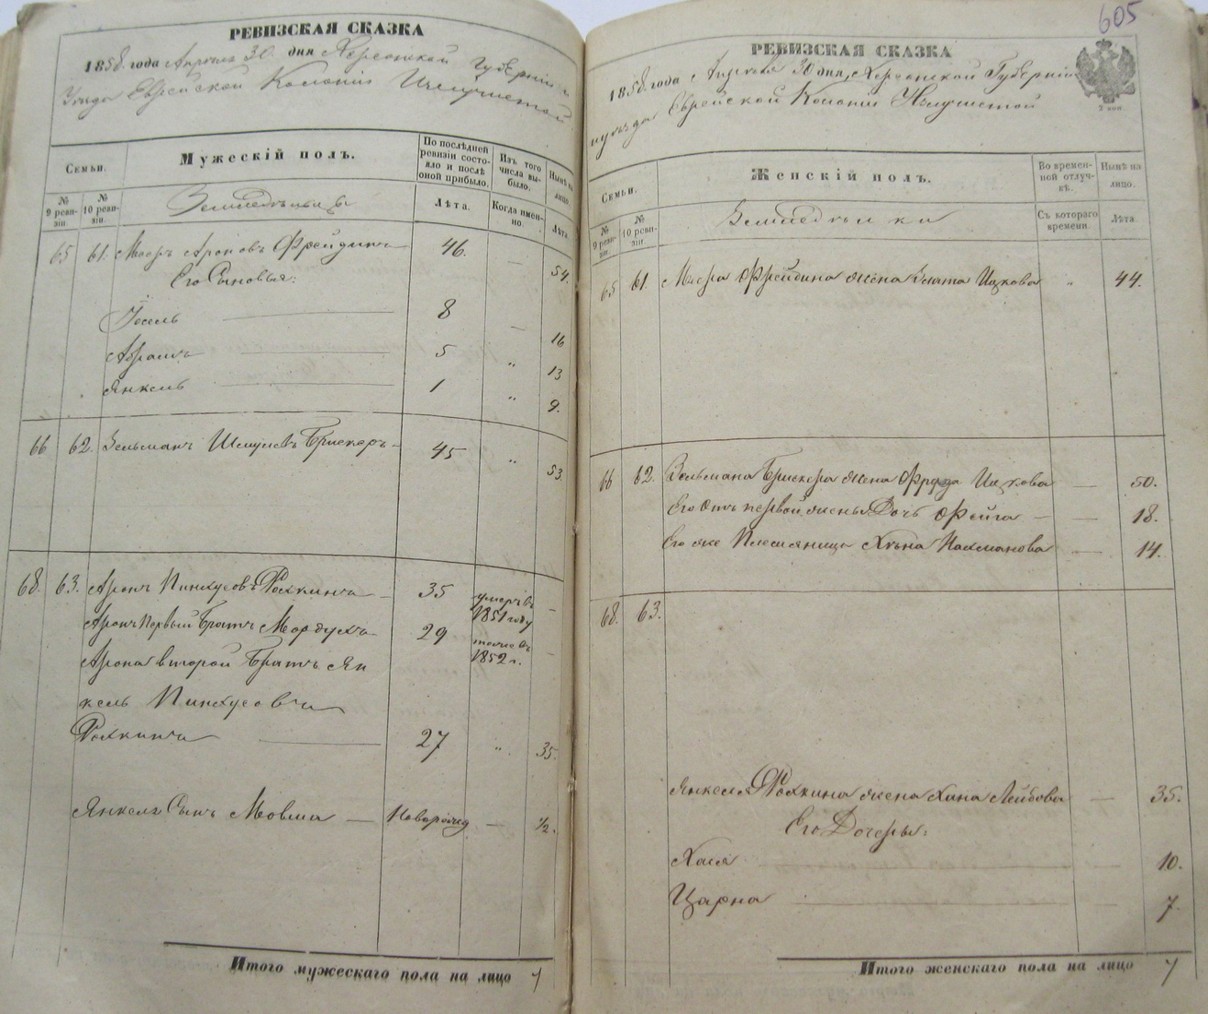 РЕВИЗСКАЯ СКАЗКА
1858 года Апреля 30 дня Херсонской Губерніи
Уезда Еврейской Колоніи
Семьи.
Мужескій полъ.
По послѣдней ревизіи состояло и послѣ оной прибыло.
Изъ того числа выбыло.
Нынѣ на лицо.
№ 9 ревизіи.
№ 10 ревизіи.
Лѣта.
Когда именно.
Лѣта.
65 61. Мееръ Ароновъ Фрейдинъ 46. — 54.
Его Сыновья:
Іосель 8 — 16
Абрамъ 5 „ 13
Янкель 1 „ 9.
66 62. Зельманъ Шмулевъ Брискеръ 45 „ 53.
68. 63. Аронъ Пинхусовъ Рохкинъ 35 умеръ въ 1851 году —
Арона первый братъ Мордухъ 29 тоже въ 1852 г. —
Арона второй братъ Ян
кель Пинхусовъ
Рохкинъ 27 „ 35.
Янкеля Сынъ Мовша — Новорожд — ½.
Итого мужескаго пола на лицо 7
605
РЕВИЗСКАЯ СКАЗКА
1858 года Апреля 30 дня, Херсонской Губерніи
уезда Еврейской Колоніи
Семьи.
Женскій полъ.
Во временной отлучкѣ.
Нынѣ на лицо.
№ 9 ревизіи.
№ 10 ревизіи.
Съ котораго времени.
Лѣта.
65 61. Меера Фрейдина жена Злата Ицкова „ 44.
66 62. Зельмана Брискера жена Фрада Ицкова — 50.
Его отъ первой жены Дочь Фейга — 18.
Его же Племянница Хена Нахманова — 14.
68. 63.
Янкеля Рохкина жена Хана Лейбова — 35.
Его Дочеры:
Хася 10.
Царна — 7.
Итого женскаго пола на лицо 7